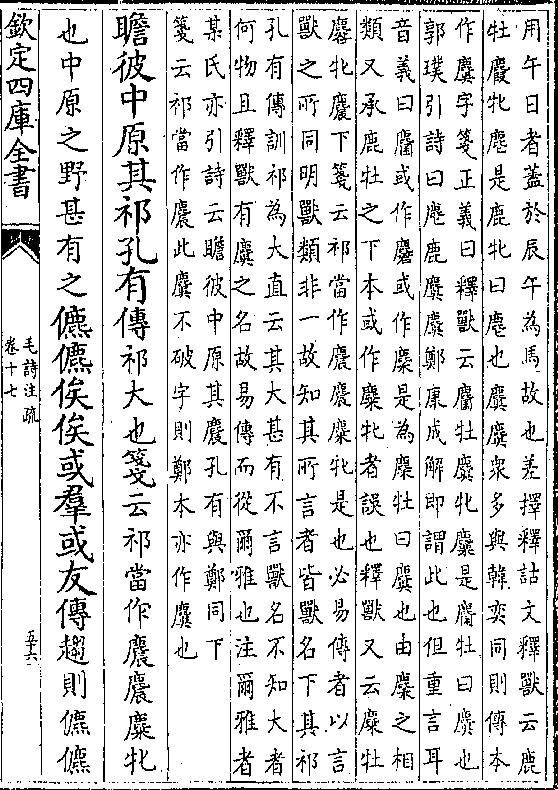 用午日者蓋於辰午為馬故也差擇釋詁文釋獸云鹿
牡麚牝麀是鹿牝曰麀也麌麌衆多與韓奕同則傳本
作麌字箋正義曰釋獸云麕牡麌牝麜是麕牡曰麌也
郭璞引詩曰麀鹿麌麌鄭康成解即謂此也但重言耳
音義曰麕或作麏或作麇是為麇牡曰麌也由麇之相
類又承鹿牡之下本或作麋牝者誤也釋獸又云麋牡
麔牝麎下箋云祁當作麎麎麋牝是也必易傳者以言
獸之所同明獸類非一故知其所言者皆獸名下其祁
孔有傳訓祁為大直云其大甚有不言獸名不知大者
何物且釋獸有麎之名故易傳而從爾雅也注爾雅者
某氏亦引詩云瞻彼中原其麎孔有與鄭同下
箋云祁當作麎此麌不破字則鄭本亦作麌也
瞻彼中原其祁孔有傳祁大也箋云祁當作麎麎麋牝
也中原之野甚有之儦儦俟俟或羣或友傳趨則儦儦
欽定四庫全書
毛詩注疏
卷十七
五十六